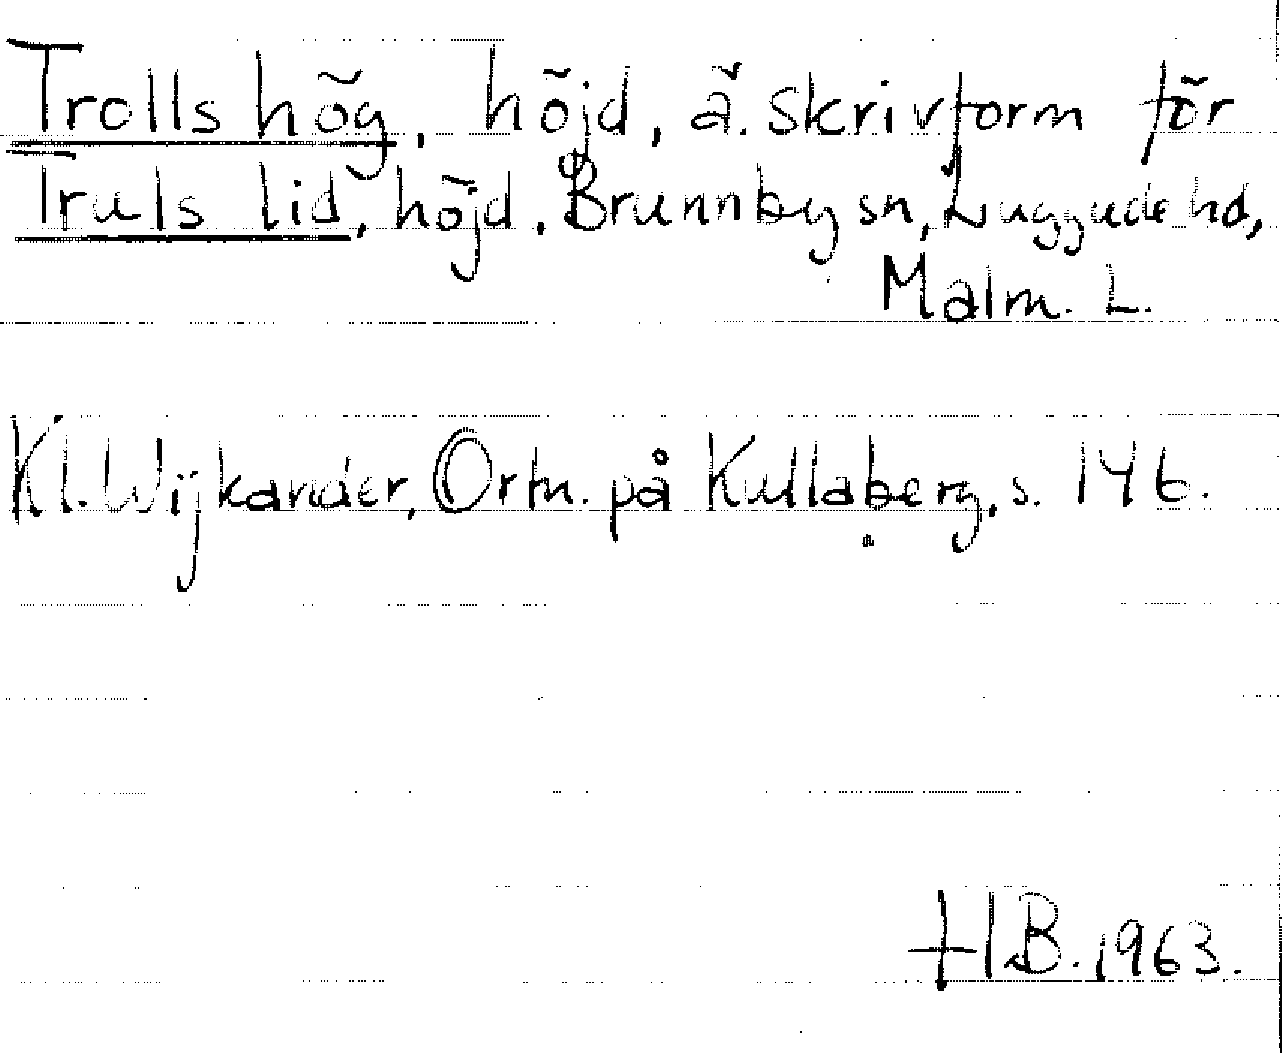 Trolls hög, höjd, ä. skrivform för
Truls lid, höjd, Brunnby sn, Luggude hd,
Malm. L.
Kl. Wijkander, Ortn. på Kullaberg, s. 146.
H.B. 1963.